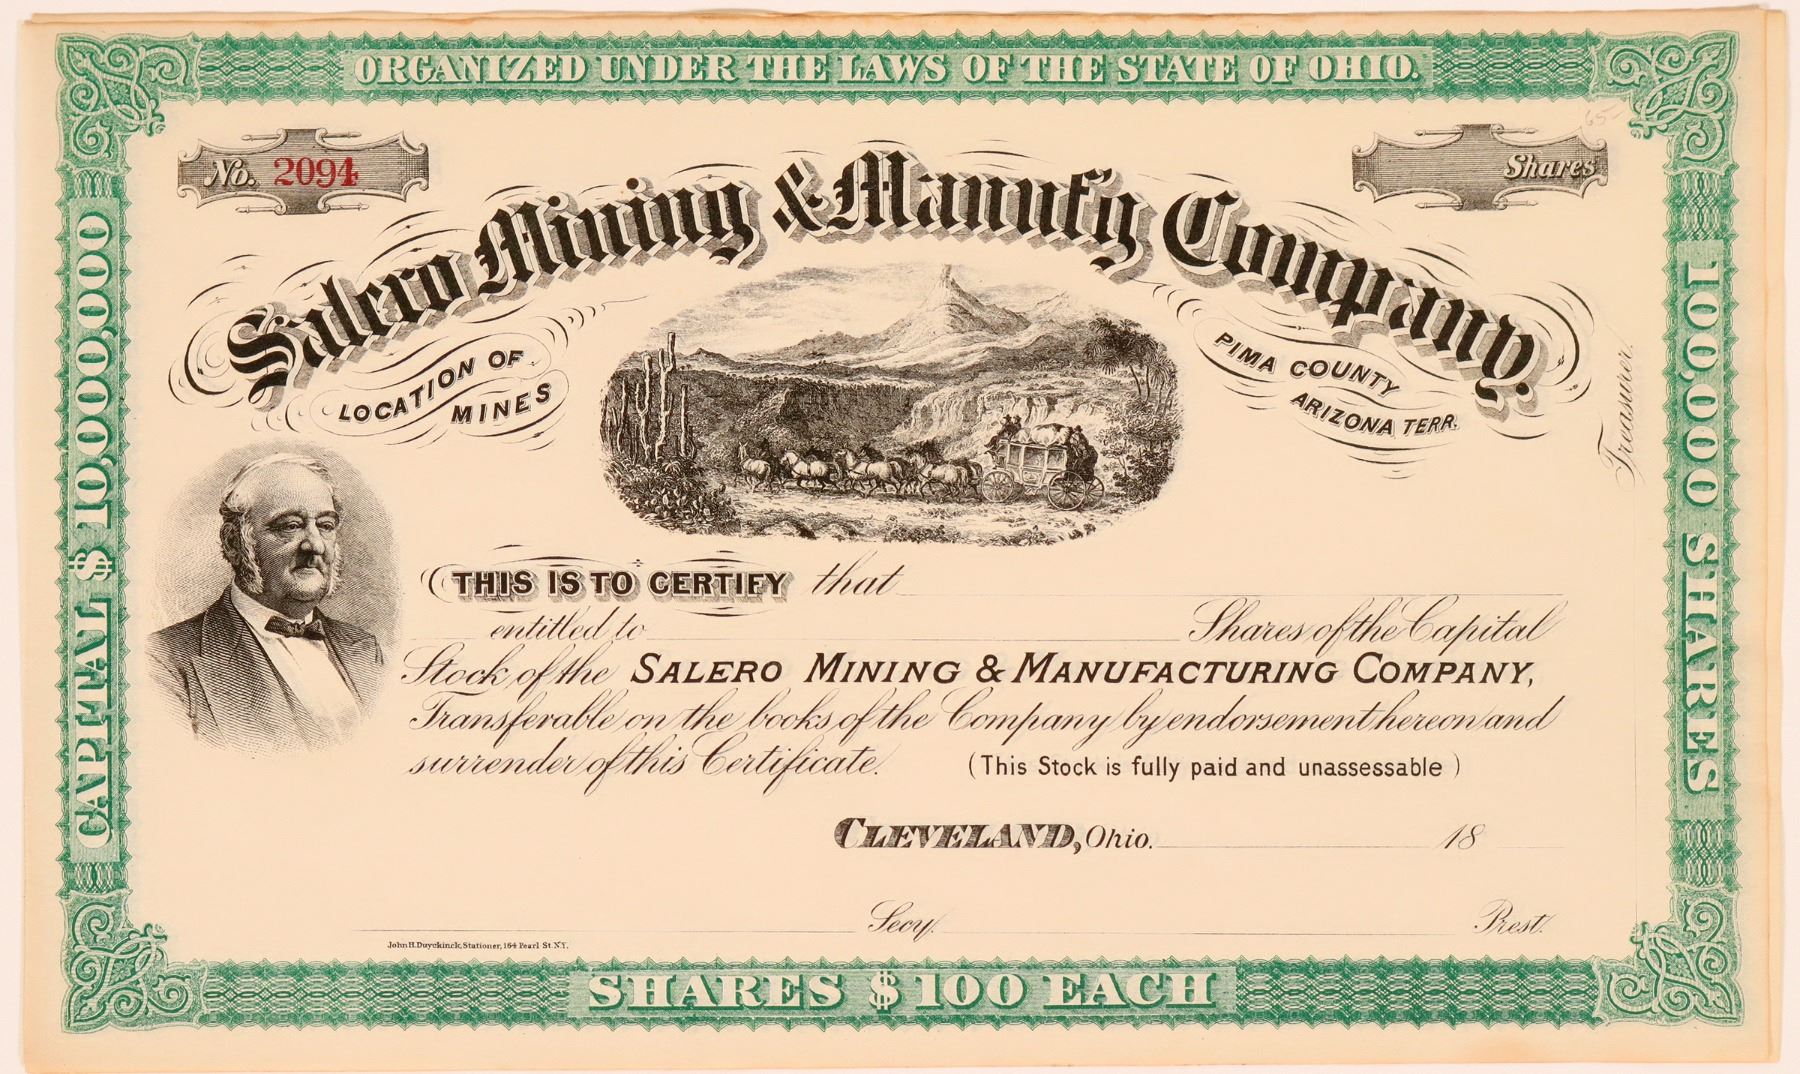 ORGANIZED UNDER THE LAWS OF THE STATE OF OHIO.
65-
No. 2094
Shares
Salero Mining & Manuf'g Company.
LOCATION OF
MINES
PIMA COUNTY
ARIZONA TERR.
Treasurer.
CAPITAL $ 10,000,000
100,000 SHARES
THIS IS TO CERTIFY that
entitled to Shares of the Capital
Stock of the SALERO MINING & MANUFACTURING COMPANY,
Transferable on the books of the Company by endorsement hereon and
surrender of this Certificate. (This Stock is fully paid and unassessable)
CLEVELAND, Ohio. 18
Secy. Prest.
John H. Duyckinck, Stationer, 164 Pearl St. N.Y.
SHARES $100 EACH